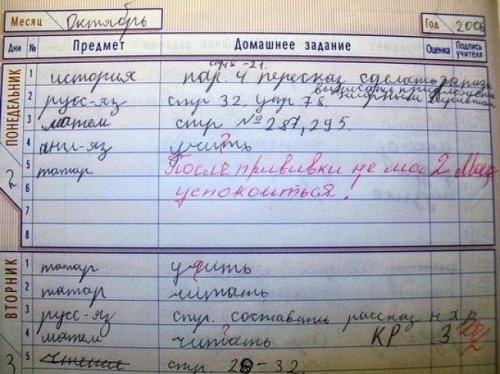 Месяц Октябрь Год 2006
Дни № Предмет Домашнее задание Оценка Подпись учителя
ПОНЕДЕЛЬНИК 2
1 история пар. 4 пересказ сделать
2 русс-яз стр 32. упр 78.
3 матем стр №287, 295.
4 англ-яз учить
5 татар После прививки не мог 2
успокоиться!
6
7
8
ВТОРНИК 3
1 татар учить
2 татар читать
3 русс-яз стр. составить рассказ
4 матем читать КР 3
5 чтение стр. 28-32